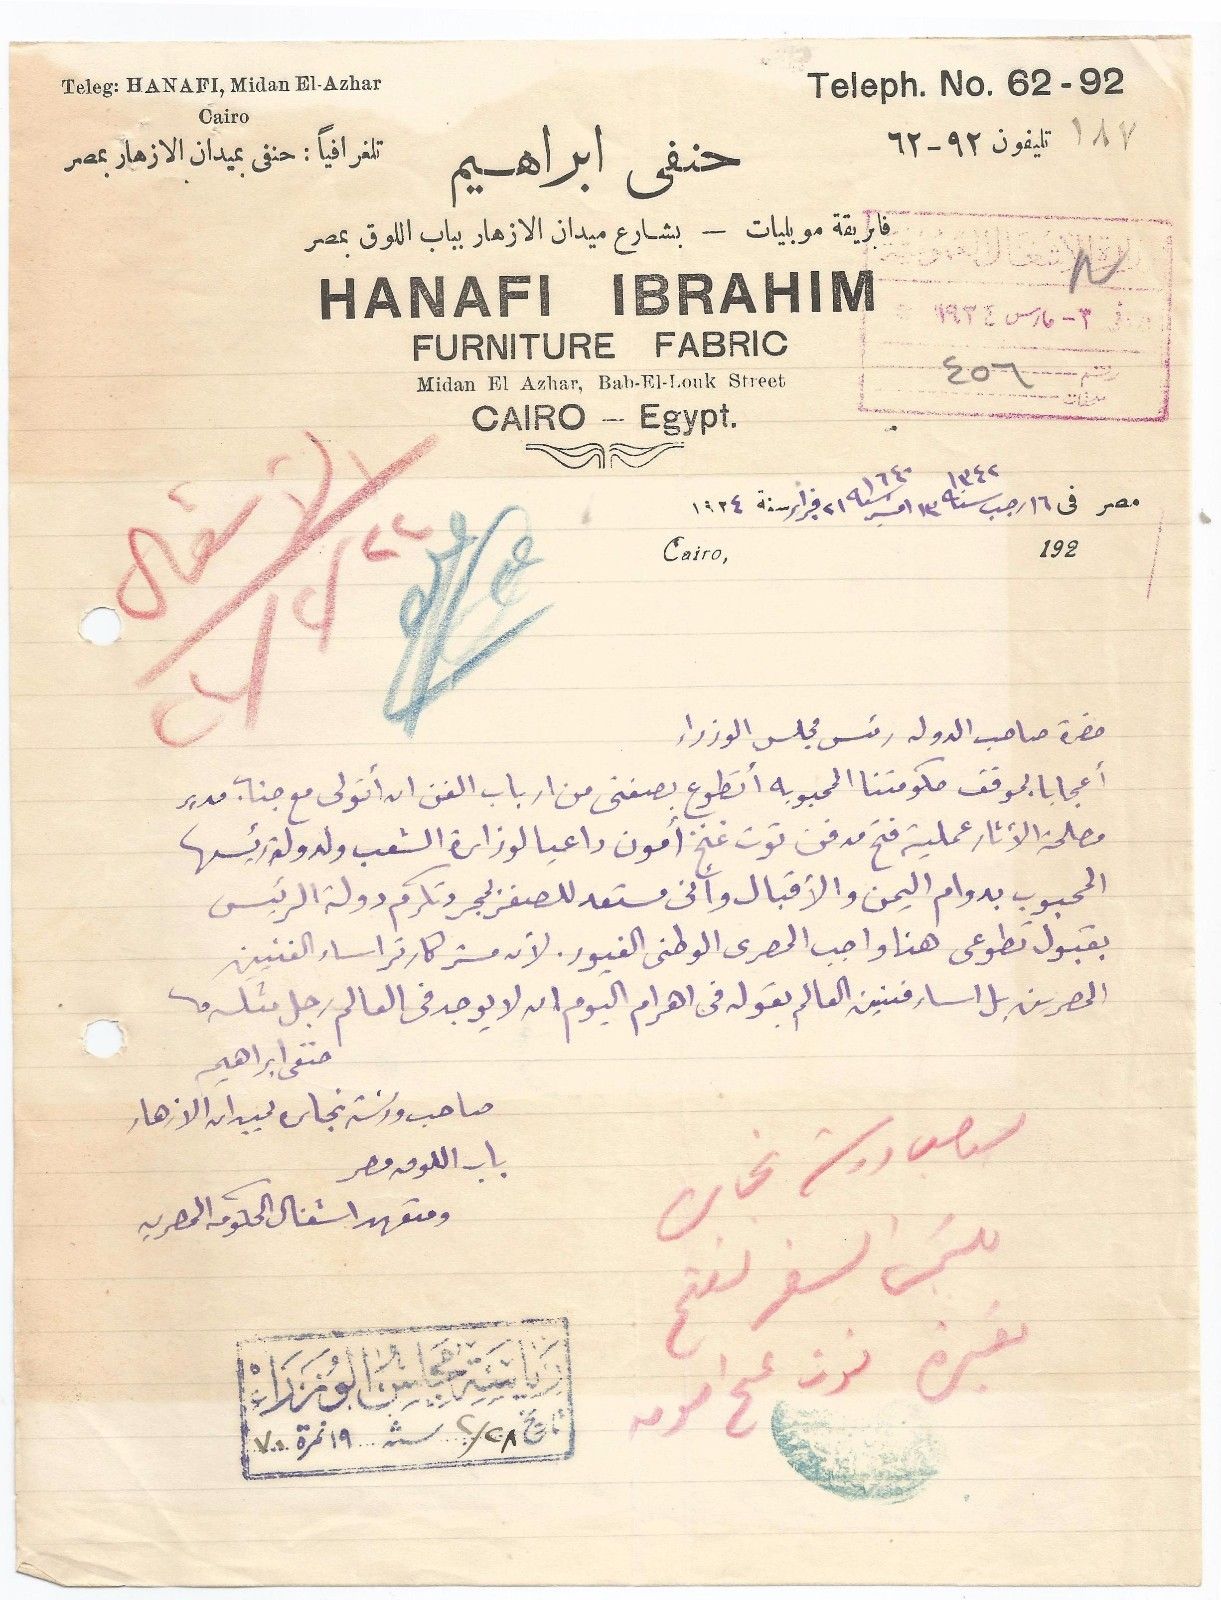 Teleg: HANAFI, Midan El-Azhar
Cairo
تلغرافياً : حنفى بميدان الازهار بمصر
Teleph. No. 62 - 92
١٨٧
تليفون ٩٢-٦٢
حنفى ابراهيم
فابريقة موبليات — بشارع ميدان الازهار بباب اللوق بمصر
HANAFI IBRAHIM
FURNITURE FABRIC
Midan El Azhar, Bab-El-Louk Street
CAIRO — Egypt.
وزارة الاشغال العمومية
فى ٣- مارس ١٩٢٤
رقم ٤٥٦
ملفات
مصر فى ١٦ رجب سنة ١٣٤٢ ١٣ امشير سنة ١٦٤٠ ٢١ فبراير سنة ١٩٢٤
Cairo, 192
اشغال
حضرة صاحب الدوله رئيس مجلس الوزراء
أعجابا بموقف حكومتنا المحبوبه أتطوع بصفتى من ارباب الفن ان أتولى مع جناب مدير
مصلحة الآثار عملية فتح مدفن توت عنخ أمون داعيا لوزارة الشعب ولدولة رئيسها
المحبوب بدوام اليمن والأقبال وأنى مستعد للسفر بمجرد تكرم دولة الرئيس
بقبول تطوعى هذا واجب المصرى الوطنى الغيور. لأن مستر كارتر اساء الفنيين
المصريين بل اساء فنيين العالم بقوله فى اهرام اليوم ان لا يوجد فى العالم رجل مثله
حنفى ابراهيم
صاحب ورشة نجاره بميدان الازهار
باب اللوق مصر
ومتعهد اشغال الحكومه المصريه
صاحب ورشة نجاره
يلتمس السفر لفتح
مقبرة توت عنخ امون
رياسة مجلس الوزراء
تاريخ ٢/٢٨ سنة ١٩ نمرة